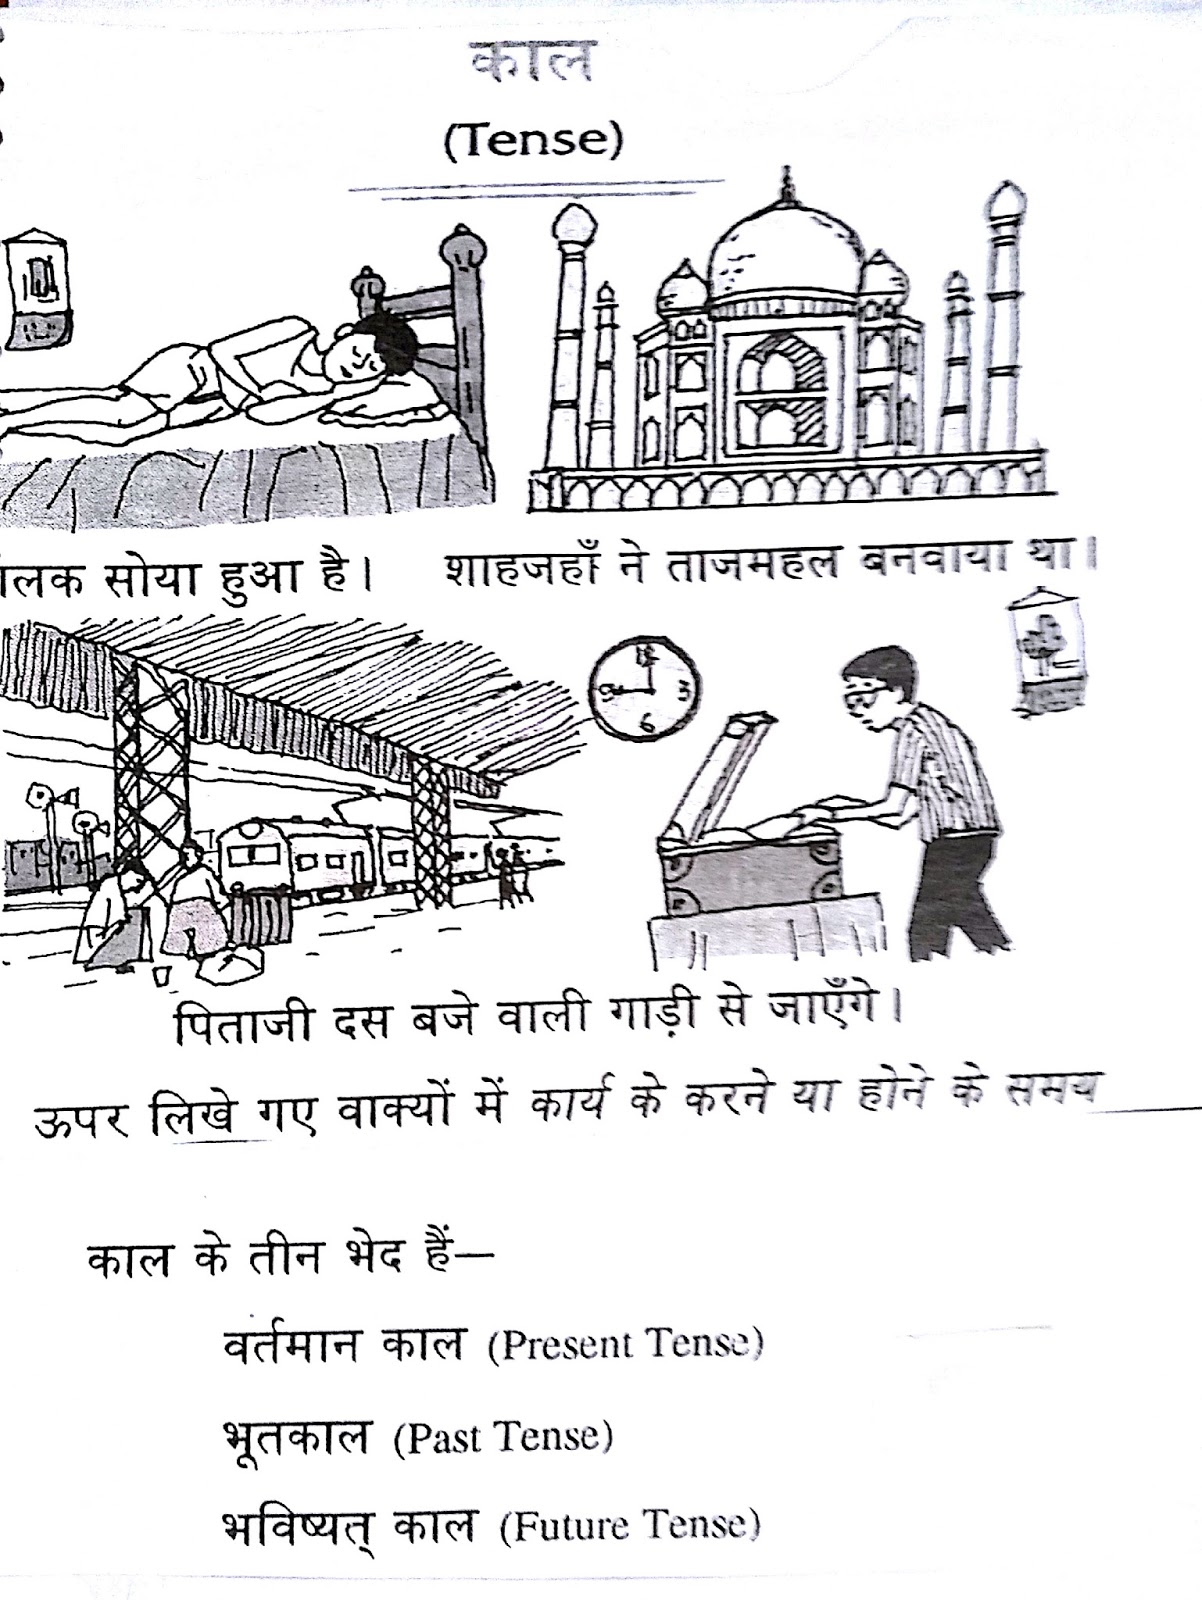 काल
(Tense)
सोया हुआ है।
शाहजहाँ ने ताजमहल बनवाया था।
12
9 3
6
पिताजी दस बजे वाली गाड़ी से जाएँगे।
ऊपर लिखे गए वाक्यों में कार्य के करने या होने के समय
काल के तीन भेद हैं—
वर्तमान काल (Present Tense)
भूतकाल (Past Tense)
भविष्यत् काल (Future Tense)